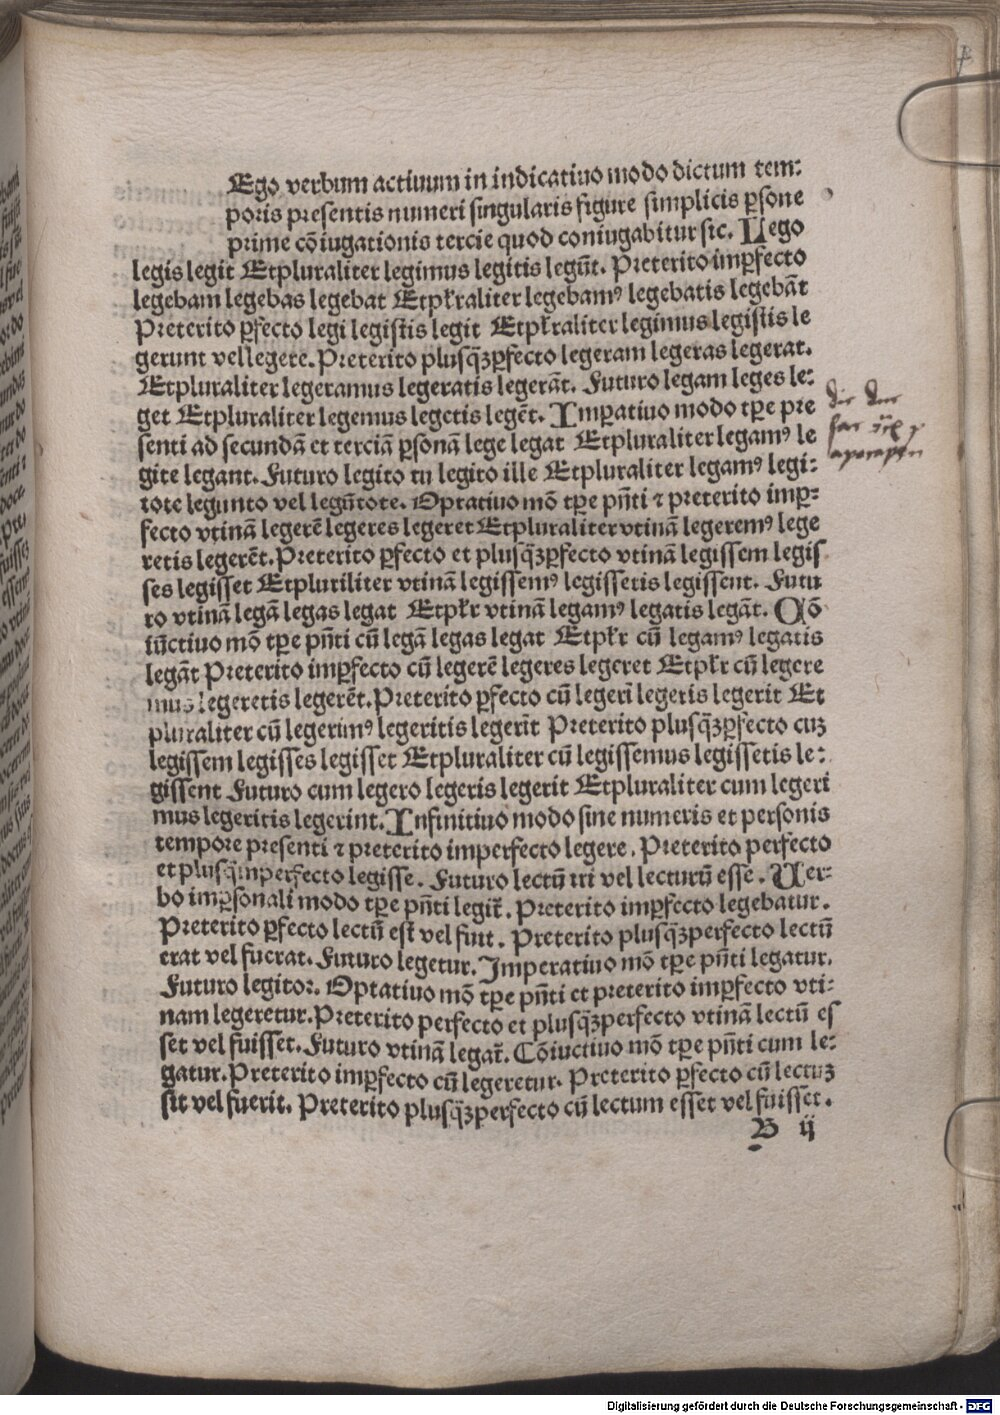 Ego verbum actiuum in indicatiuo modo dictum tem:
poris presentis numeri singularis figure simplicis p̱sone
prime cõiugationis tercie quod coniugabitur sic. Lego
legis legit Etpluraliter legimus legitis legũt. Preterito imp̱fecto
legebam legebas legebat Etpłraliter legebamꝰ legebatis legebãt
Preterito p̱fecto legi legistis legit Etpłraliter legimus legistis le
gerunt vel legere. Preterito plusq̃ꝫp̱fecto legeram legeras legerat.
Etpluraliter legeramus legeratis legerãt. Futuro legam leges le:
get Etpluraliter legemus legetis legẽt. Imp̱atiuo modo tp̱e pre
senti ad secundã et terciã p̱sonã lege legat Etpluraliter legamꝰ le
gite legant. Futuro legito tu legito ille Etpluraliter legamꝰ legi:
tote legunto vel legũtote. Optatiuo mõ tp̱e pñti ⁊ preterito imp̱:
fecto vtinã legerẽ legeres legeret Etpluraliter vtinã legeremꝰ lege
retis legerẽt. Preterito p̱fecto et plusq̃ꝫp̱fecto vtinã legissem legis
ses legisset Etpluriliter vtinã legissemꝰ legissetis legissent. Futu
ro vtinã legã legas legat Etpłr vtinã legamꝰ legatis legãt. Cõ
iũctiuo mõ tp̱e pñti cũ legã legas legat Etpłr cũ legamꝰ legatis
legãt Preterito imp̱fecto cũ legerẽ legeres legeret Etpłr cũ legere
mus legeretis legerẽt. Preterito p̱fecto cũ legerĩ legeris legerit Et
pluraliter cũ legerimꝰ legeritis legerĩt Preterito plusq̃ꝫp̱fecto cuꝫ
legissem legisses legisset Etpluraliter cũ legissemus legissetis le:
gissent Futuro cum legero legeris legerit Etpluraliter cum legeri
mus legeritis legerint. Infinitiuo modo sine numeris et personis
tempore presenti ⁊ preterito imperfecto legere. Preterito perfecto
et plusq̃mperfecto legisse. Futuro lectũ iri vel lecturũ esse. Uer:
bo imp̱sonali modo tp̱e pñti legit̃. Preterito imp̱fecto legebatur.
Preterito p̱fecto lectũ est vel fuit. Preterito plusq̃ꝫperfecto lectũ
erat vel fuerat. Futuro legetur. Imperatiuo mõ tp̱e pñti legatur.
Futuro legitor. Optatiuo mõ tp̱e pñti et preterito imp̱fecto vti:
nam legeretur. Preterito perfecto et plusq̃ꝫperfecto vtinã lectũ es
set vel fuisset. Futuro vtinã legat̃. Cõiuctiuo mõ tp̱e pñti cum le:
gatur. Preterito imp̱fecto cũ legeretur. Preterito p̱fecto cũ lectuꝫ
sit vel fuerit. Preterito plusq̃ꝫperfecto cũ lectum esset vel fuisset.
B ij
Digitalisierung gefördert durch die Deutsche Forschungsgemeinschaft - DFG